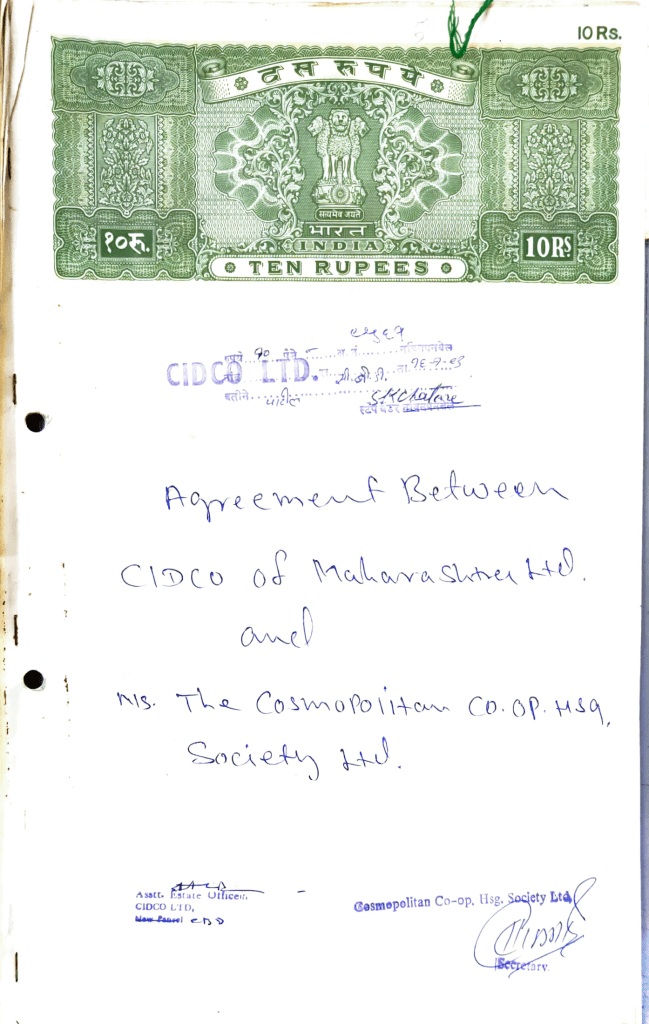 10 Rs.
दस रुपये
सत्यमेव जयते
भारत
INDIA
१०रू.
10RS
TEN RUPEES
रुपये १०
CIDCO LTD.
सी.बी.डी.
पाटील
S.K.Chatare
Agreement Between
CIDCO of Maharashtra Ltd.
and
M/S. The Cosmopolitan CO.OP. HSG.
Society Ltd.
Asstt. Estate Officer,
CIDCO LTD,
New Panvel CBD
Cosmopolitan Co-op. Hsg. Society Ltd.
Secretary.